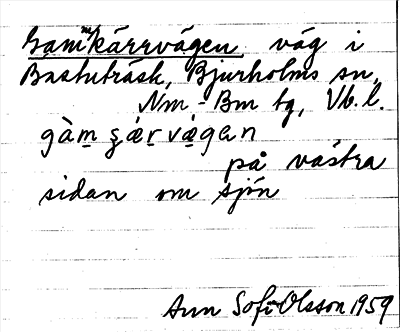 Gammkärrvägen väg i
Bastuträsk, Bjurholms sn,
Nm-Bm tg, Vb. l.
gàm̲ʂär̲vä̲gen
på västra
sidan om sjön
Ann Sofi Olsson 1959